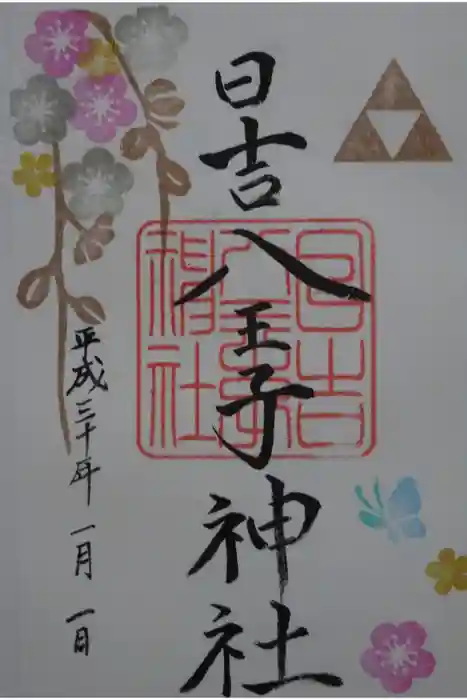 日吉八王子神社
日吉
八王子
神社
平成三十年 一月 一日